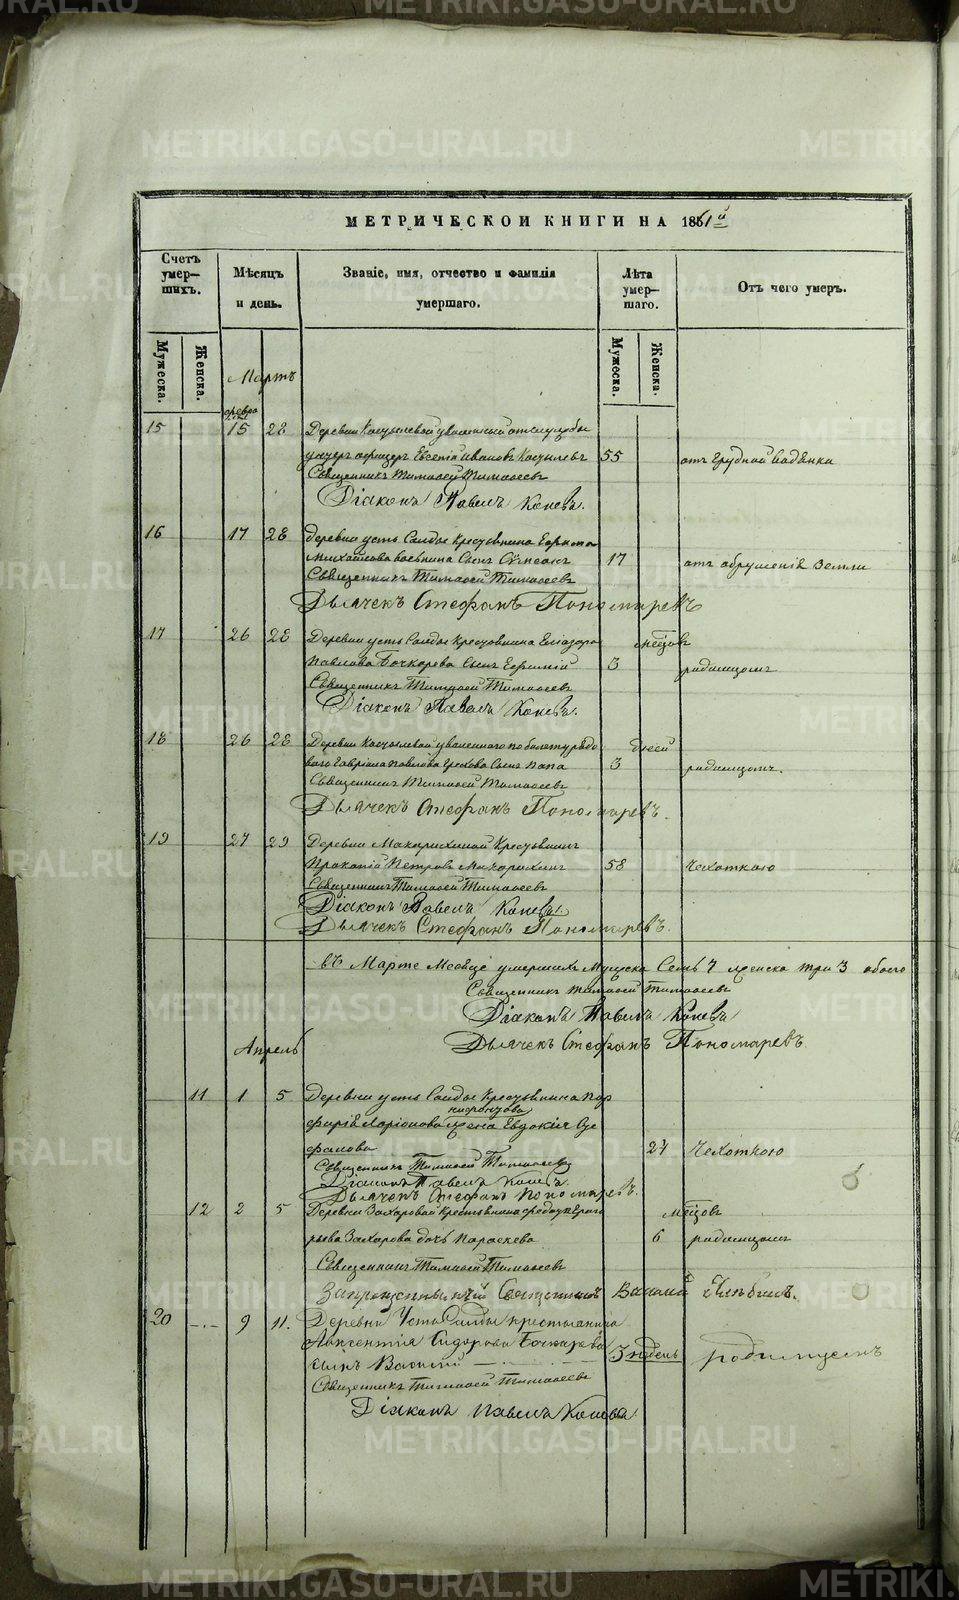 METRIKI.GASO-URAL.RU
МЕТРИЧЕСКОЙ КНИГИ НА 1861й
Счетъ умер-
шихъ.
Мѣсяцъ
и день.
Званіе, имя, отчество и фамилія
умершаго.
Лѣта
умер-
шаго.
Отъ чего умеръ.
Мужеска.
Женска.
Мужеска.
Женска.
Мартъ
15 15 28 Деревни уволенный отъ службы
унтеръ офицеръ Евсевій Ивановъ 55 отъ грудной водянки
Священникъ Тимофей Тимофеевъ
Діаконъ Павелъ Коневъ.
16 17 28 Деревни усть Салды Крестьянина
Михайлова сынъ 17 отъ обрушенія Земли
Священникъ Тимофей Тимофеевъ
Дьячекъ Стефанъ Пономаревъ
17 26 28 Деревни усть Салды Крестьянина Елеазара мѣсцов
Павлова Бочкарева сынъ Ефимій 3 родимцомъ
Священникъ Тимофей Тимофеевъ
Діаконъ Павелъ Коневъ.
18 26 28 Деревни уволеннаго по билету рядо дней
ваго Гавріила Павлова сынъ 3 родимцомъ.
Священникъ Тимофей Тимофеевъ
Дьячекъ Стефанъ Пономаревъ.
19 27 29 Деревни Макарихиной Крестьянинъ
Прокопій Петровъ Макарихинъ 58 Чехоткою
Священникъ Тимофей Тимофеевъ
Діаконъ Павелъ Коневъ.
Дьячекъ Стефанъ Пономаревъ.
въ Марте Месяце умершихъ Мужеска Семь 7 женска три 3 обоего
Священникъ Тимофей Тимофеевъ
Діаконъ Павелъ Коневъ
Дьячекъ Стефанъ Пономаревъ
Апрель
11 1 5 Деревни усть Салды Крестьянина Пор
фирія Ларіонова жена Евдокія
27 Чехоткою
Священникъ Тимофей Тимофеевъ
Діаконъ Павелъ Коневъ.
Дьячекъ Стефанъ Пономаревъ.
12 2 5 Деревни Захаровой Крестьянина мѣсцов
Захарова дочь Параскева 6 родимцомъ
Священникъ Тимофей Тимофеевъ
Запрещенный Священникъ
20 9 11. Деревни Усть Салды крестьянина
Авксентія Сидорова Бочкарева
сынъ Василій 3 недель родимцемъ
Священникъ Тимофей Тимофеевъ
Діаконъ Павелъ Коневъ